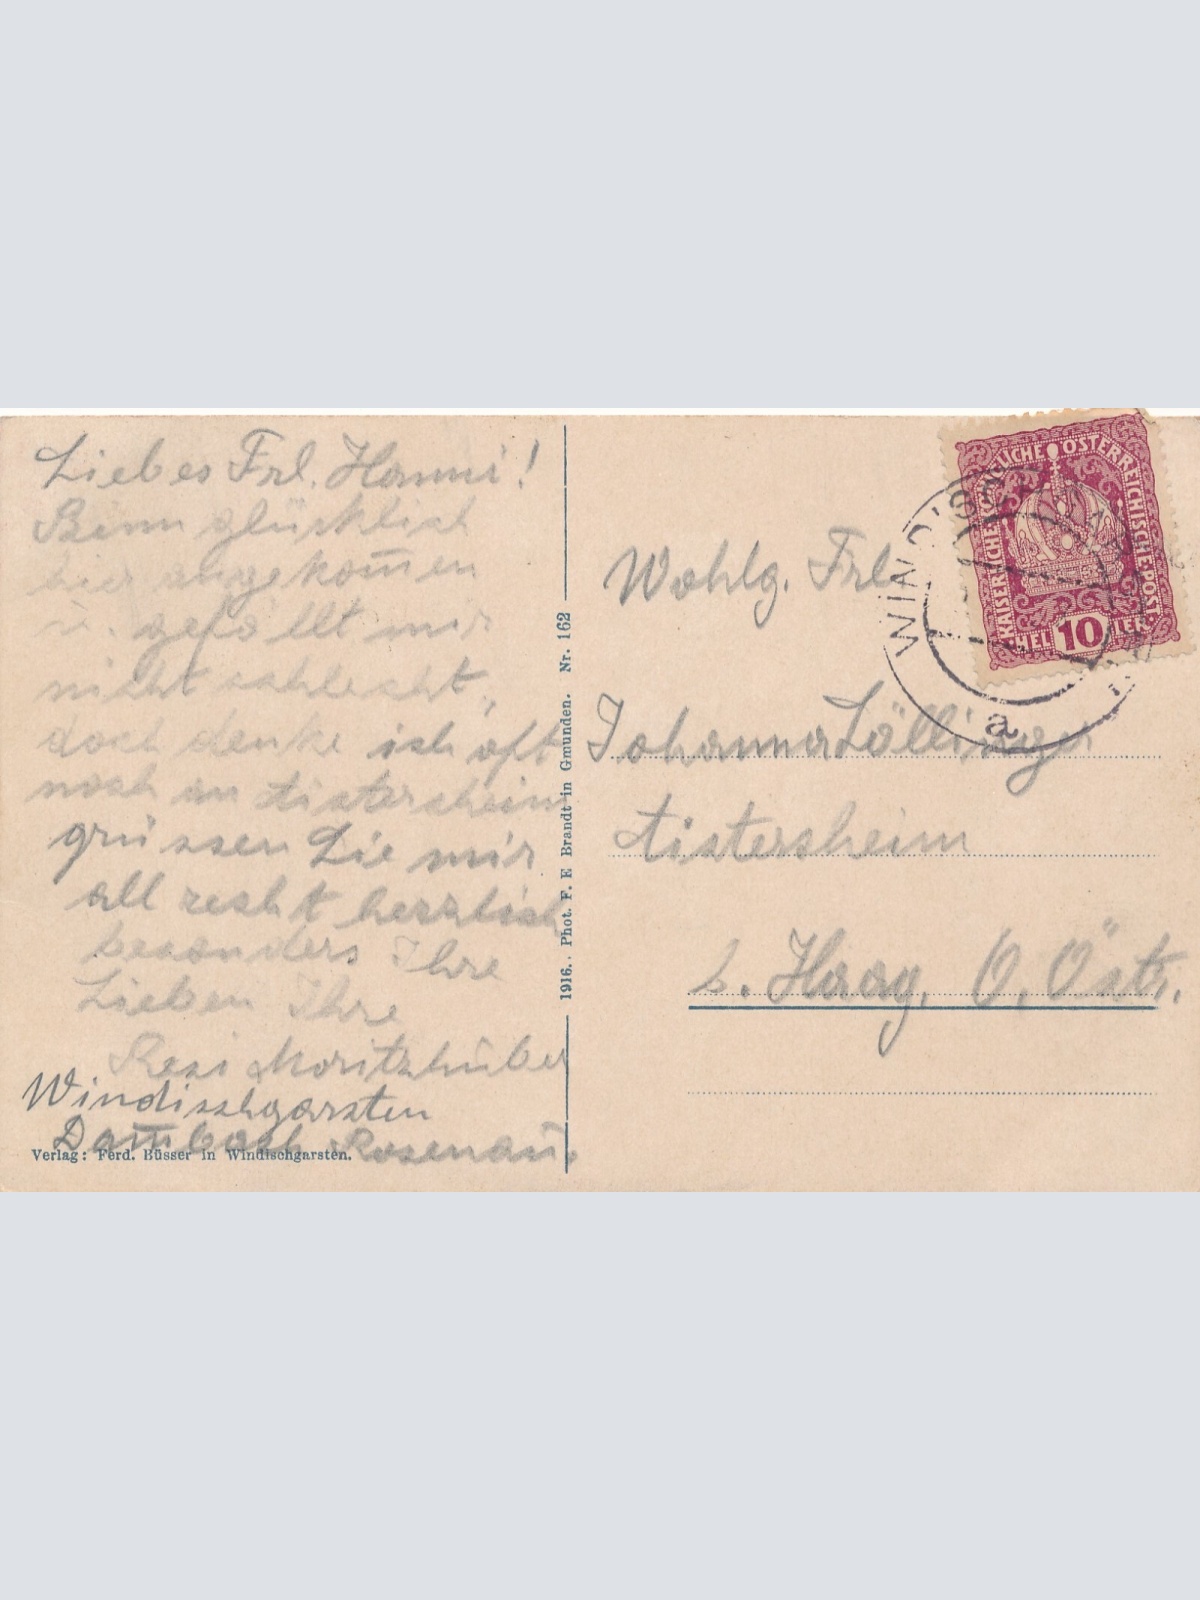 Liebes Frl. Hanni!
Binn glücklich
hier angekom̅en
u. gefällt mir
nicht schlecht,
doch denke ich oft
noch an Aistersheim
grüssen Sie mir
all recht herzlich
besonders Ihre
Lieben Ihre
Resi Moritzhuber
Windischgarsten
Dam̅bach Rosenau.
Verlag: Ferd. Büsser in Windischgarsten.
1916. Phot. F. E Brandt in Gmunden. Nr. 162
KAISERLICHE KÖNIGLICHE ÖSTERREICHISCHE POST.
HEL 10 LER.
WINDISCH
a
Wohlg. Frl
Johanna Löllinger
Aistersheim
b. Haag, O. Östr.